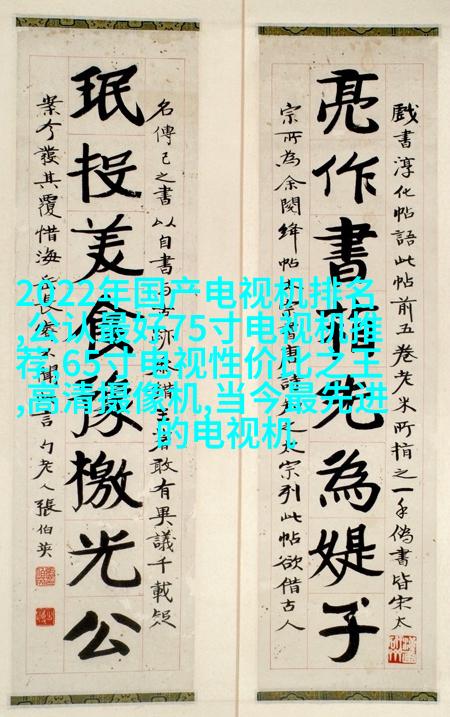 戲書淳化帖語此帖前五卷老米所指之一手偽書皆宋太
亮作書植先為媞子
宗所為余閱絳帖宗唐諱知太宗列此帖欲借古人
名傳己之書以自書者敢有異議千載疑
珉投美食豫檄光公
案今發其覆惜海長聞言勺老人張伯英
2022年国产电视机排名
,公认最好75寸电视机推
荐,65寸电视性价比之王
,高清摄像机,当今最先进
的电视机